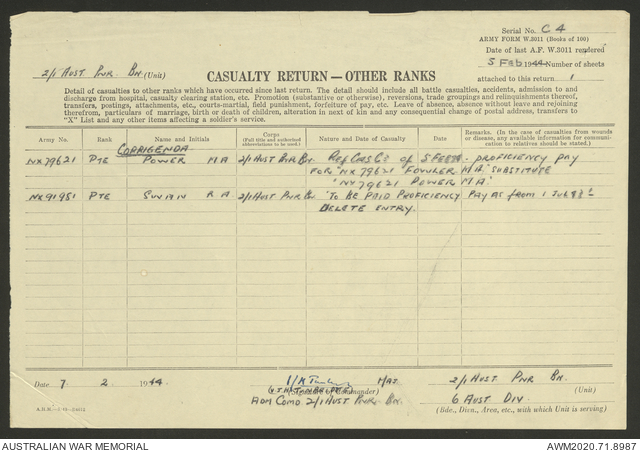 Serial No. C 4
ARMY FORM W.3011 (Books of 100)
Date of last A.F. W.3011 rendered
5 Feb 1944 Number of sheets
attached to this return 1
2/1 AUST PNR. BN. (Unit)
CASUALTY RETURN—OTHER RANKS
Detail of casualties to other ranks which have occurred since last return. The detail should include all battle casualties, accidents, admission to and
discharge from hospital, casualty clearing station, etc. Promotion (substantive or otherwise), reversions, trade groupings and relinquishments thereof,
transfers, postings, attachments, etc., courts-martial, field punishment, forfeiture of pay, etc. Leave of absence, absence without leave and rejoining
therefrom, particulars of marriage, birth or death of children, alteration in next of kin and any consequential change of postal address, transfers to
"X" List and any other items affecting a soldier's service.
Army No. Rank Name and Initials Corps (Full title and authorised abbreviations to be used.) Nature and Date of Casualty Date Remarks. (In the case of casualties from wounds or disease, any available information for communication to relatives should be stated.)
CORRIGENDA
NX79621 PTE POWER M A 2/1 AUST PNR BN. REF CAS C3 of 5 FEB 44. PROFICIENCY PAY
FOR "NX 79621 FOWLER M/A" SUBSTITUTE
"NX 79621 POWER M A"
NX91951 PTE R A 2/1 AUST PNR BN "TO BE PAID PROFICIENCY PAY AS from 1 JUL
DELETE ENTRY.
Date 7. 2 1944.
MAJ
(Signature of Commander)
ADM COMD 2/1 AUST PNR. BN.
2/1 AUST PNR BN. (Unit)
6 AUST DIV.
(Bde., Divn., Area, etc., with which Unit is serving)
AUSTRALIAN WAR MEMORIAL
AWM2020.71.8987